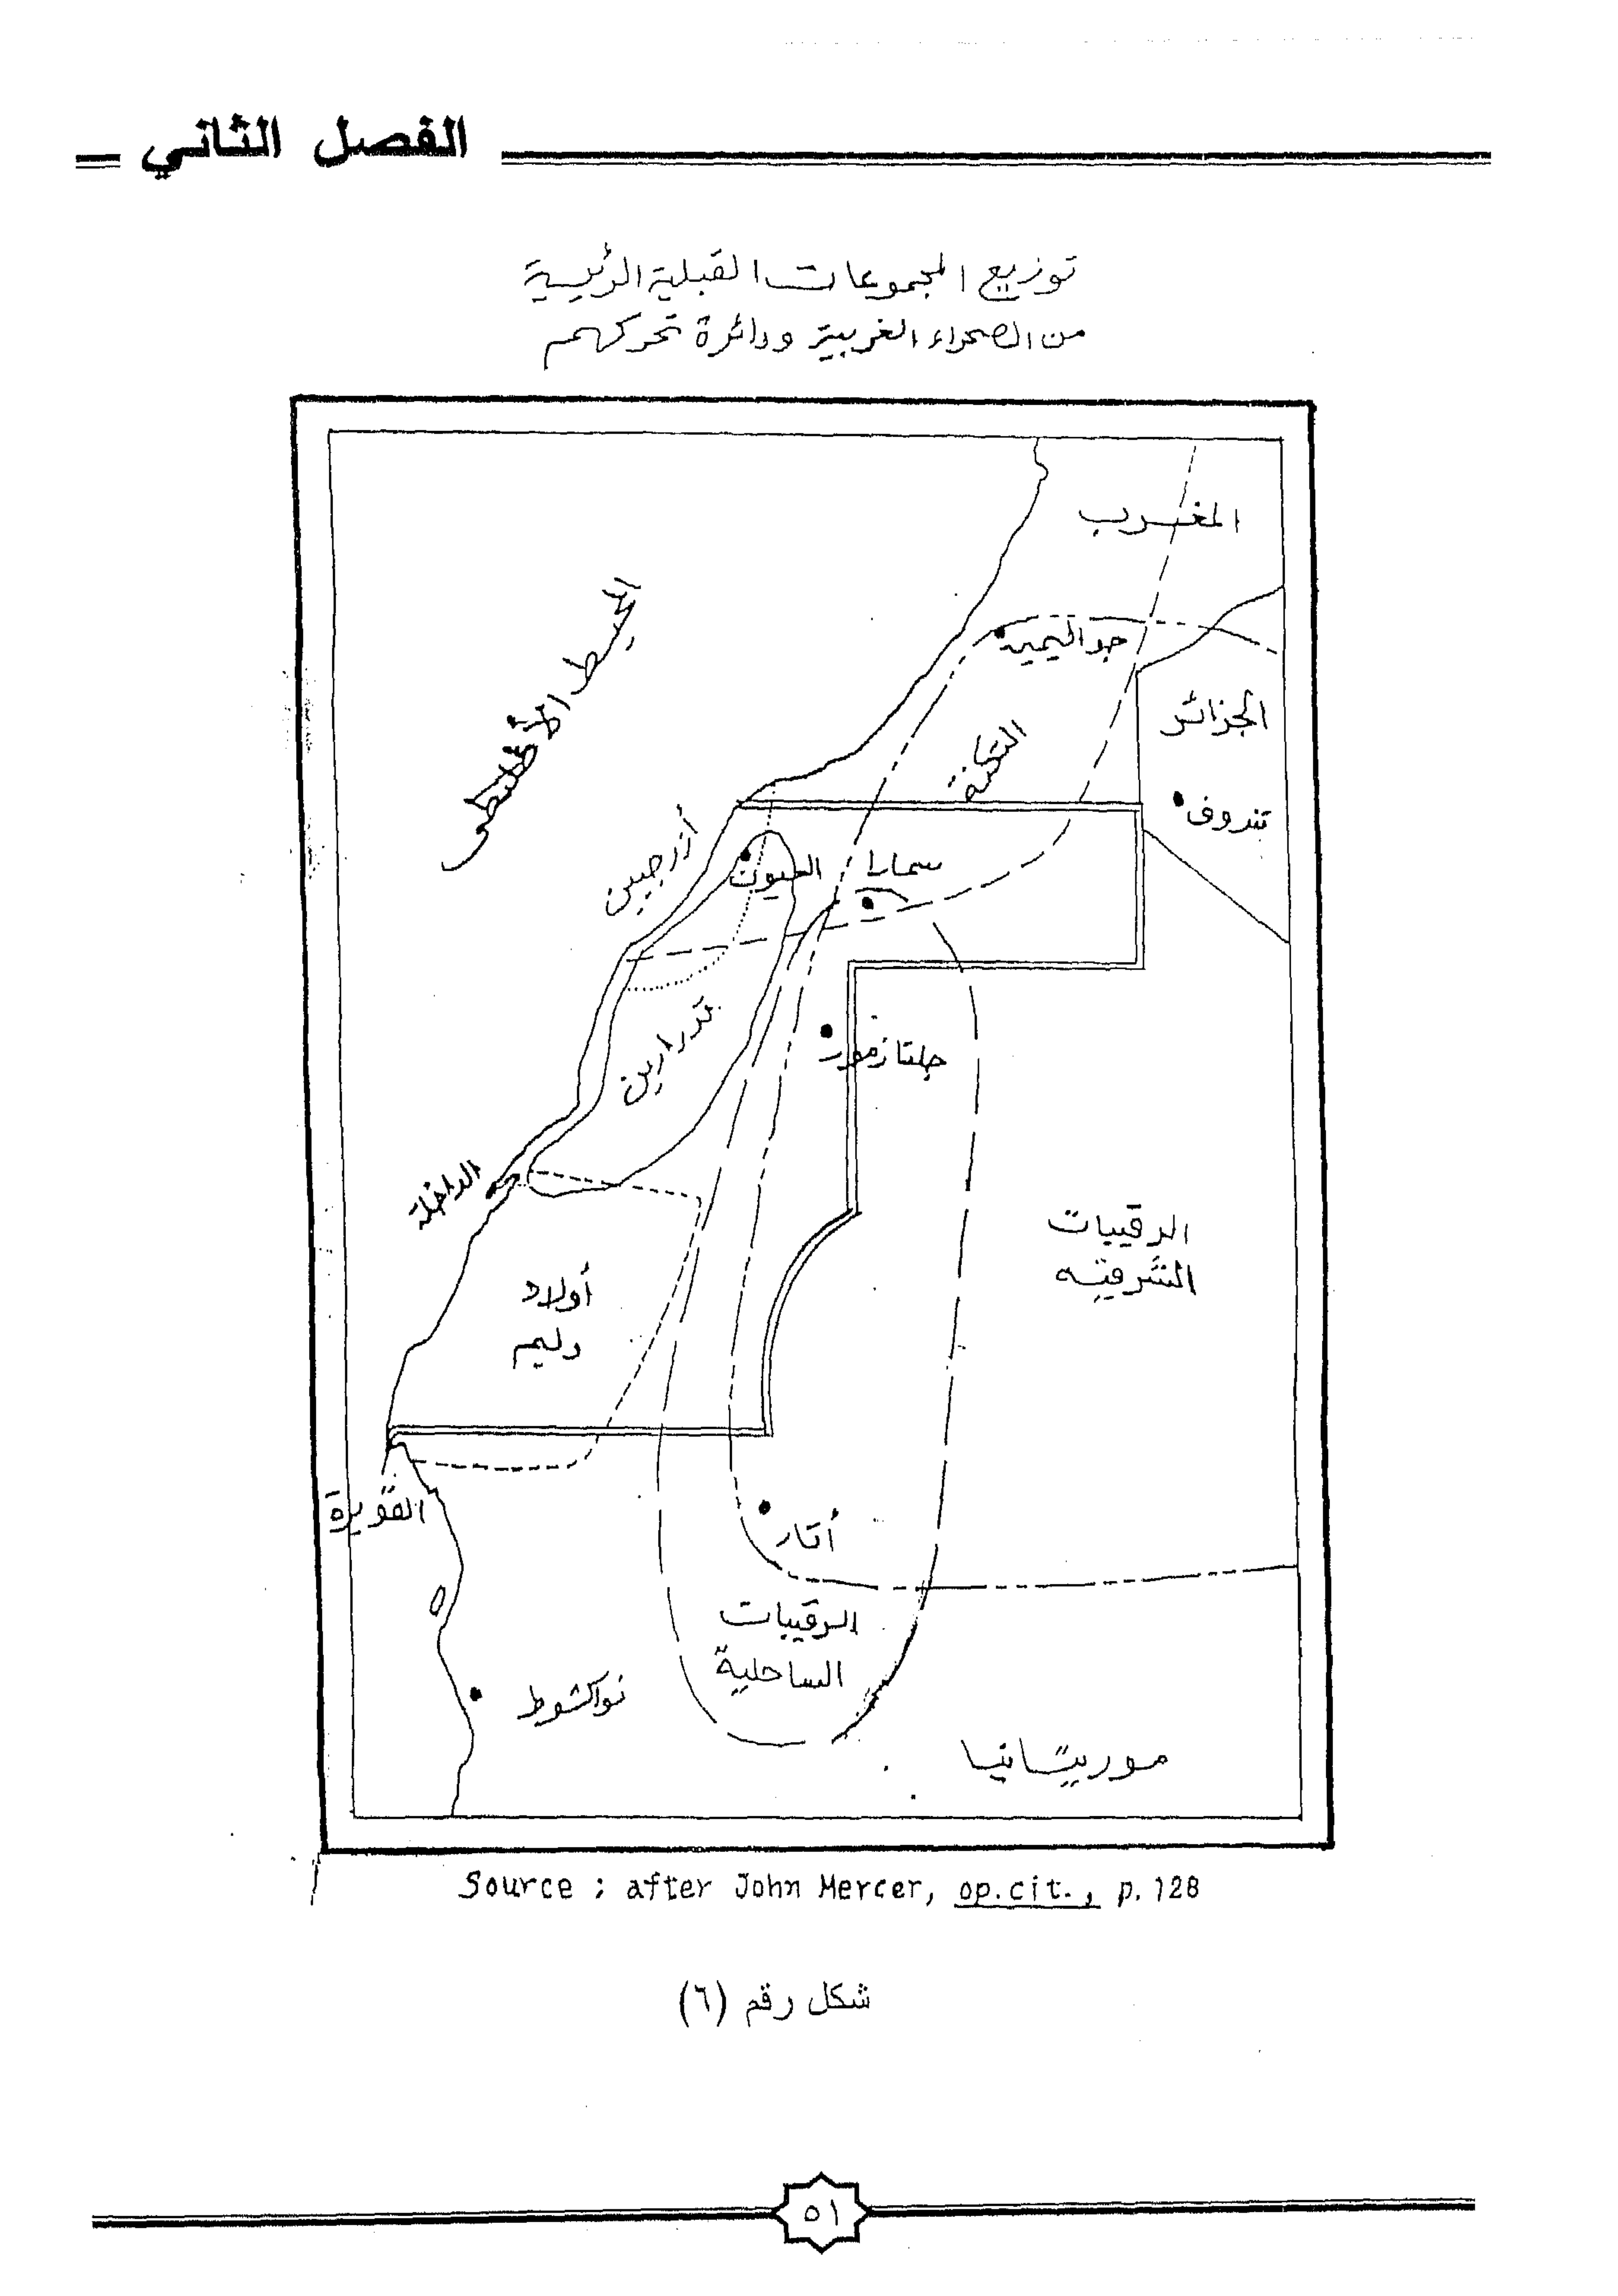 الفصل الثاني
توزيع المجموعات القبلية الرئيسية
من الصحراء الغربية ودائرة تحركهم
المغرب
المحيط الأطلنطى
الجزائر
التكنة
تندوف
أزرجيين
العيون
سمارا
تدرارين
جلتا زمور
الداخلة
الرقيبات
الشرقية
أولاد
دليم
القويرة
أتار
الرقيبات
الساحلية
نواكشوط
موريتانيا
Source : after John Mercer, op.cit., p.128
شكل رقم (٦)
٥١